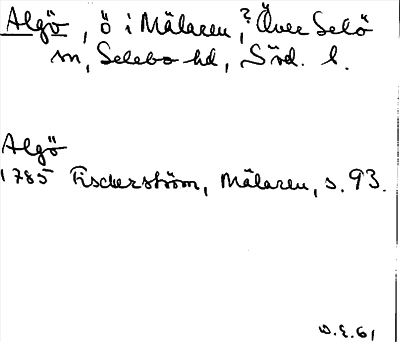 Algö, ö i Mälaren, ? Över Selö
sn, Selebo hd, Södl. l.
Algö
1785 Fischerström, Mälaren, s. 93.
W.E. 61